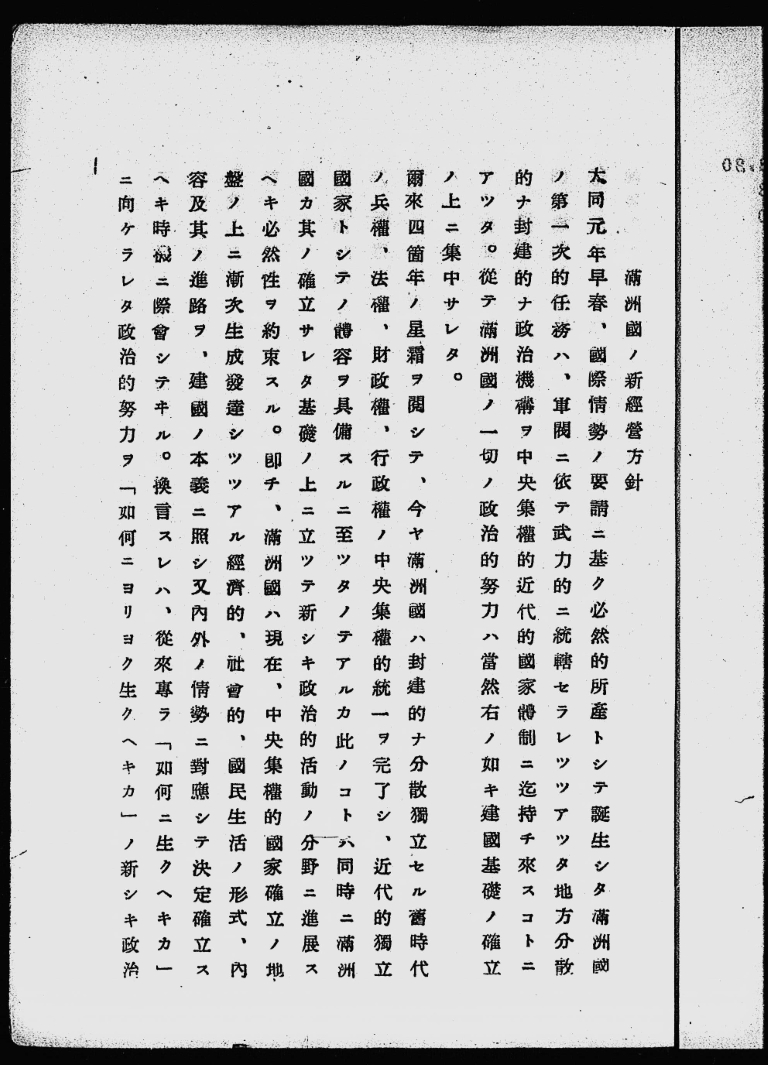 滿洲國ノ新經營方針
大同元年早春、國際情勢ノ要請ニ基ク必然的所產トシテ誕生シタ滿洲國
ノ第一次的任務ハ、軍閥ニ依テ武力的ニ統轄セラレツツアツタ地方分散
的ナ封建的ナ政治機構ヲ中央集權的近代的國家體制ニ迄持チ來スコトニ
アツタ。從テ滿洲國ノ一切ノ政治的努力ハ當然右ノ如キ建國基礎ノ確立
ノ上ニ集中サレタ。
爾來四箇年ノ星霜ヲ閱シテ、今ヤ滿洲國ハ封建的ナ分散獨立セル舊時代
ノ兵權、法權、財政權、行政權ノ中央集權的統一ヲ完了シ、近代的獨立
國家トシテノ體容ヲ具備スルニ至ツタノテアルカ此ノコトハ同時ニ滿洲
國カ其ノ確立サレタ基礎ノ上ニ立ツテ新シキ政治的活動ノ分野ニ進展ス
ヘキ必然性ヲ約束スル。卽チ、滿洲國ハ現在、中央集權的國家確立ノ地
盤ノ上ニ漸次生成發達シツツアル經濟的、社會的、國民生活ノ形式、內
容及其ノ進路ヲ、建國ノ本義ニ照シ又內外ノ情勢ニ對應シテ決定確立ス
ヘキ時機ニ際會シテヰル。換言スレハ、從來專ラ「如何ニ生クヘキカ」
ニ向ケラレタ政治的努力ヲ「如何ニヨリヨク生クヘキカ」ノ新シキ政治
1